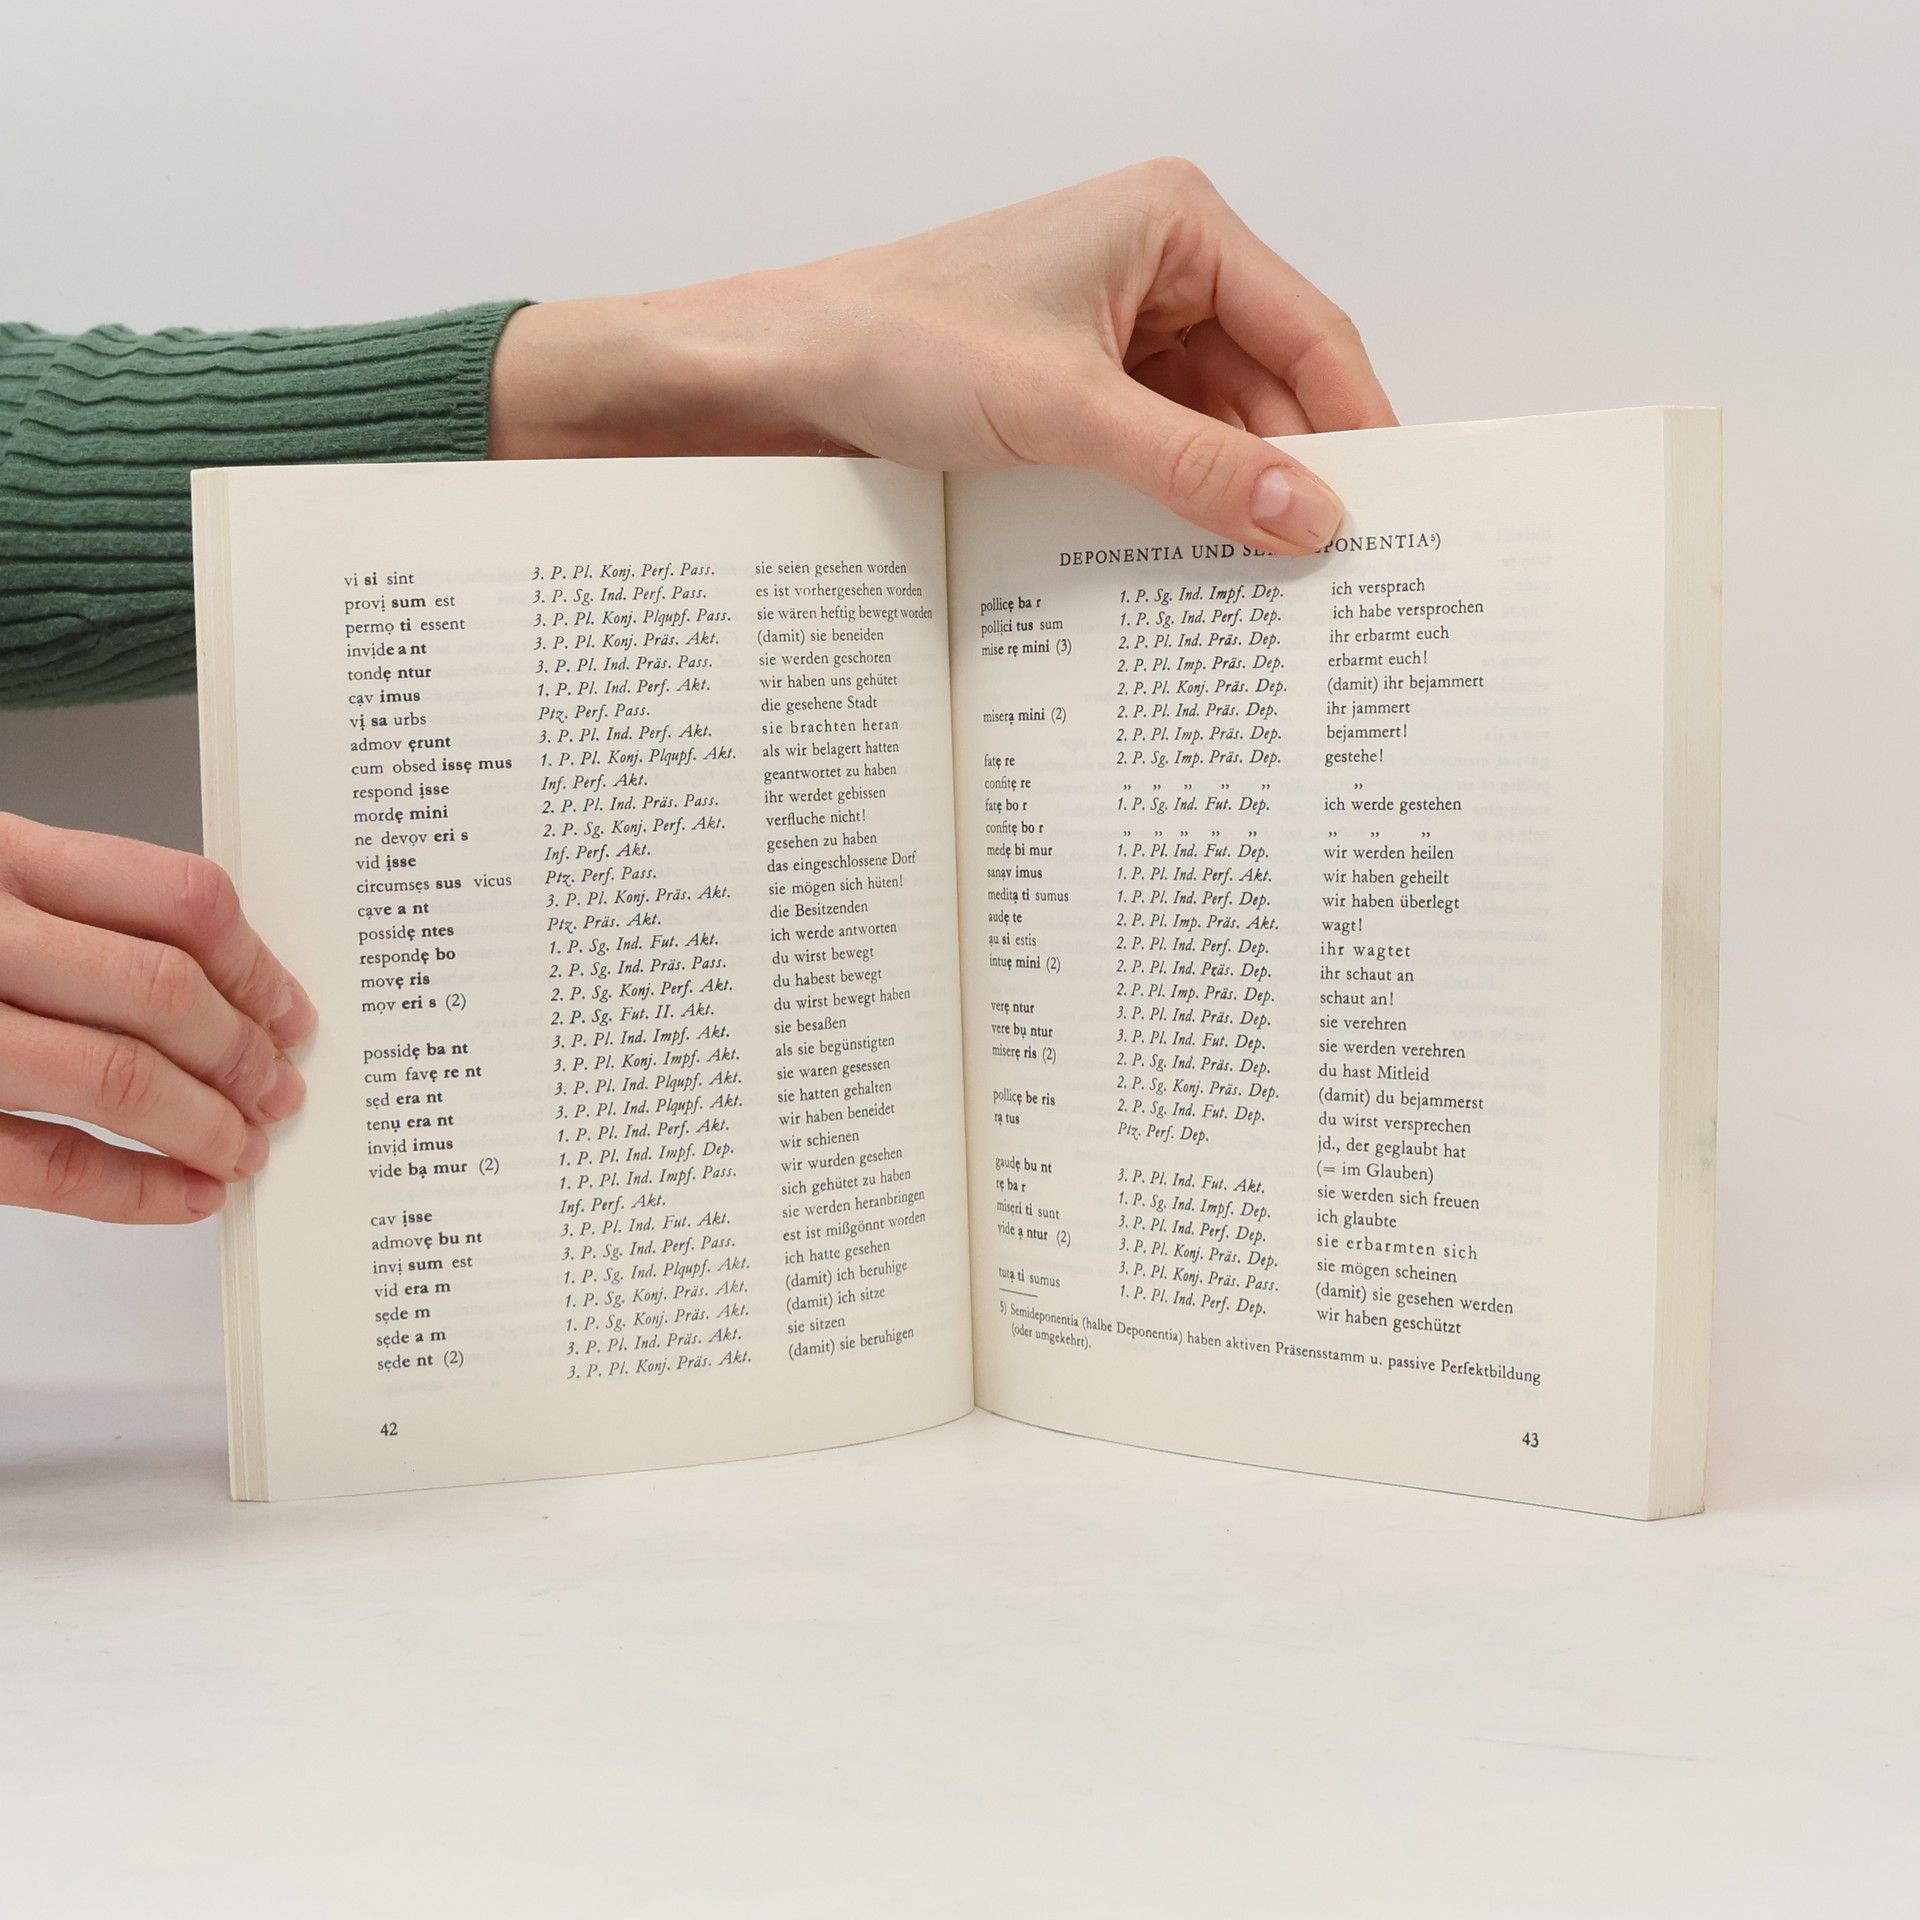 vi si sint 3. P. Pl. Konj. Perf. Pass. sie seien gesehen worden
provị sum est 3. P. Sg. Ind. Perf. Pass. es ist vorhergesehen worden
permọ ti essent 3. P. Pl. Konj. Plqupf. Pass. sie wären heftig bewegt worden
invịde a nt 3. P. Pl. Konj. Präs. Akt. (damit) sie beneiden
tondẹ ntur 3. P. Pl. Ind. Präs. Pass. sie werden geschoren
cạv imus 1. P. Pl. Ind. Perf. Akt. wir haben uns gehütet
vị sa urbs Ptz. Perf. Pass. die gesehene Stadt
admov ẹrunt 3. P. Pl. Ind. Perf. Akt. sie brachten heran
cum obsed issẹ mus 1. P. Pl. Konj. Plqupf. Akt. als wir belagert hatten
respond ịsse Inf. Perf. Akt. geantwortet zu haben
mordẹ mini 2. P. Pl. Ind. Präs. Pass. ihr werdet gebissen
ne devọv eri s 2. P. Sg. Konj. Perf. Akt. verfluche nicht!
vid ịsse Inf. Perf. Akt. gesehen zu haben
circumsẹs sus vicus Ptz. Perf. Pass. das eingeschlossene Dorf
cạve a nt 3. P. Pl. Konj. Präs. Akt. sie mögen sich hüten!
possidẹ ntes Ptz. Präs. Akt. die Besitzenden
respondẹ bo 1. P. Sg. Ind. Fut. Akt. ich werde antworten
movẹ ris 2. P. Sg. Ind. Präs. Pass. du wirst bewegt
mọv eri s (2) 2. P. Sg. Konj. Perf. Akt. du habest bewegt
2. P. Sg. Fut. II. Akt. du wirst bewegt haben
possidẹ ba nt 3. P. Pl. Ind. Impf. Akt. sie besaßen
cum favẹ re nt 3. P. Pl. Konj. Impf. Akt. als sie begünstigten
sẹd era nt 3. P. Pl. Ind. Plqupf. Akt. sie waren gesessen
tenụ era nt 3. P. Pl. Ind. Plqupf. Akt. sie hatten gehalten
invịd imus 1. P. Pl. Ind. Perf. Akt. wir haben beneidet
vide bạ mur (2) 1. P. Pl. Ind. Impf. Dep. wir schienen
1. P. Pl. Ind. Impf. Pass. wir wurden gesehen
cav ịsse Inf. Perf. Akt. sich gehütet zu haben
admovẹ bu nt 3. P. Pl. Ind. Fut. Akt. sie werden heranbringen
invị sum est 3. P. Sg. Ind. Perf. Pass. est ist mißgönnt worden
vịd era m 1. P. Sg. Ind. Plqupf. Akt. ich hatte gesehen
sẹde m 1. P. Sg. Konj. Präs. Akt. (damit) ich beruhige
sẹde a m 1. P. Sg. Konj. Präs. Akt. (damit) ich sitze
sẹde nt (2) 3. P. Pl. Ind. Präs. Akt. sie sitzen
3. P. Pl. Konj. Präs. Akt. (damit) sie beruhigen
42
DEPONENTIA UND PONENTIA⁵)
pollicẹ ba r 1. P. Sg. Ind. Impf. Dep. ich versprach
pollịci tus sum 1. P. Sg. Ind. Perf. Dep. ich habe versprochen
mise rẹ mini (3) 2. P. Pl. Ind. Präs. Dep. ihr erbarmt euch
2. P. Pl. Imp. Präs. Dep. erbarmt euch!
2. P. Pl. Konj. Präs. Dep. (damit) ihr bejammert
miserạ mini (2) 2. P. Pl. Ind. Präs. Dep. ihr jammert
2. P. Pl. Imp. Präs. Dep. bejammert!
fatẹ re 2. P. Sg. Imp. Präs. Dep. gestehe!
confitẹ re „ „ „ „ „ „
fatẹ bo r 1. P. Sg. Ind. Fut. Dep. ich werde gestehen
confitẹ bo r „ „ „ „ „ „ „ „
medẹ bi mur 1. P. Pl. Ind. Fut. Dep. wir werden heilen
sanạv imus 1. P. Pl. Ind. Perf. Akt. wir haben geheilt
meditạ ti sumus 1. P. Pl. Ind. Perf. Dep. wir haben überlegt
audẹ te 2. P. Pl. Imp. Präs. Akt. wagt!
ạu si estis 2. P. Pl. Ind. Perf. Dep. ihr wagtet
intuẹ mini (2) 2. P. Pl. Ind. Präs. Dep. ihr schaut an
2. P. Pl. Imp. Präs. Dep. schaut an!
verẹ ntur 3. P. Pl. Ind. Präs. Dep. sie verehren
vere bụ ntur 3. P. Pl. Ind. Fut. Dep. sie werden verehren
miserẹ ris (2) 2. P. Sg. Ind. Präs. Dep. du hast Mitleid
2. P. Sg. Konj. Präs. Dep. (damit) du bejammerst
pollicẹ be ris 2. P. Sg. Ind. Fut. Dep. du wirst versprechen
rạ tus Ptz. Perf. Dep. jd., der geglaubt hat
(= im Glauben)
gaudẹ bu nt 3. P. Pl. Ind. Fut. Akt. sie werden sich freuen
rẹ ba r 1. P. Sg. Ind. Impf. Dep. ich glaubte
misẹri ti sunt 3. P. Pl. Ind. Perf. Dep. sie erbarmten sich
vide ạ ntur (2) 3. P. Pl. Konj. Präs. Dep. sie mögen scheinen
3. P. Pl. Konj. Präs. Pass. (damit) sie gesehen werden
tutạ ti sumus 1. P. Pl. Ind. Perf. Dep. wir haben geschützt
5) Semideponentia (halbe Deponentia) haben aktiven Präsensstamm u. passive Perfektbildung
(oder umgekehrt).
43